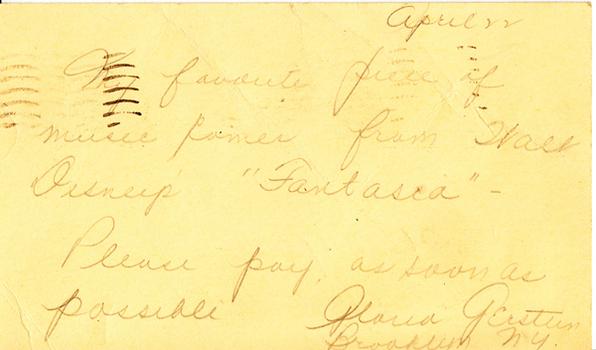 April 22
My favorite piece of
music comes from Walt
Disney's "Fantasia" -
Please pay as soon as
possible Gloria Gerstein
Brooklyn NY.